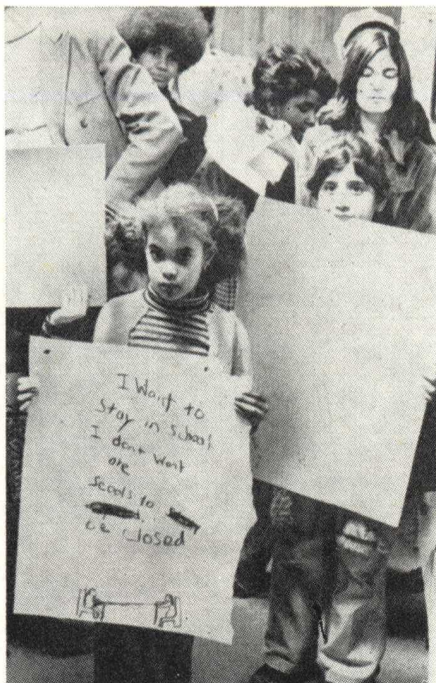 I Want to
Stay in School
I dont Want
are
Scools to
be closed